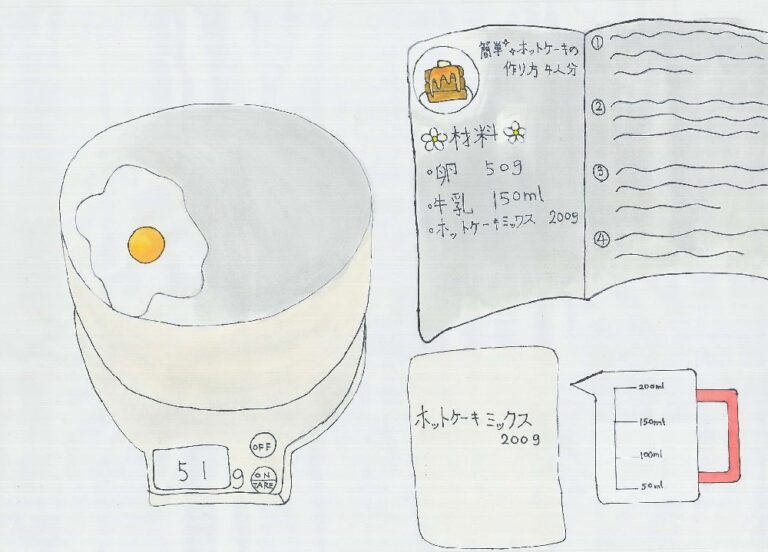 簡単ホットケーキの
作り方 4人分
材料
・卵 50g
・牛乳 150ml
・ホットケーキミックス 200g
①
②
③
④
51g
OFF
ON
TARE
ホットケーキミックス
200g
200ml
150ml
100ml
50ml